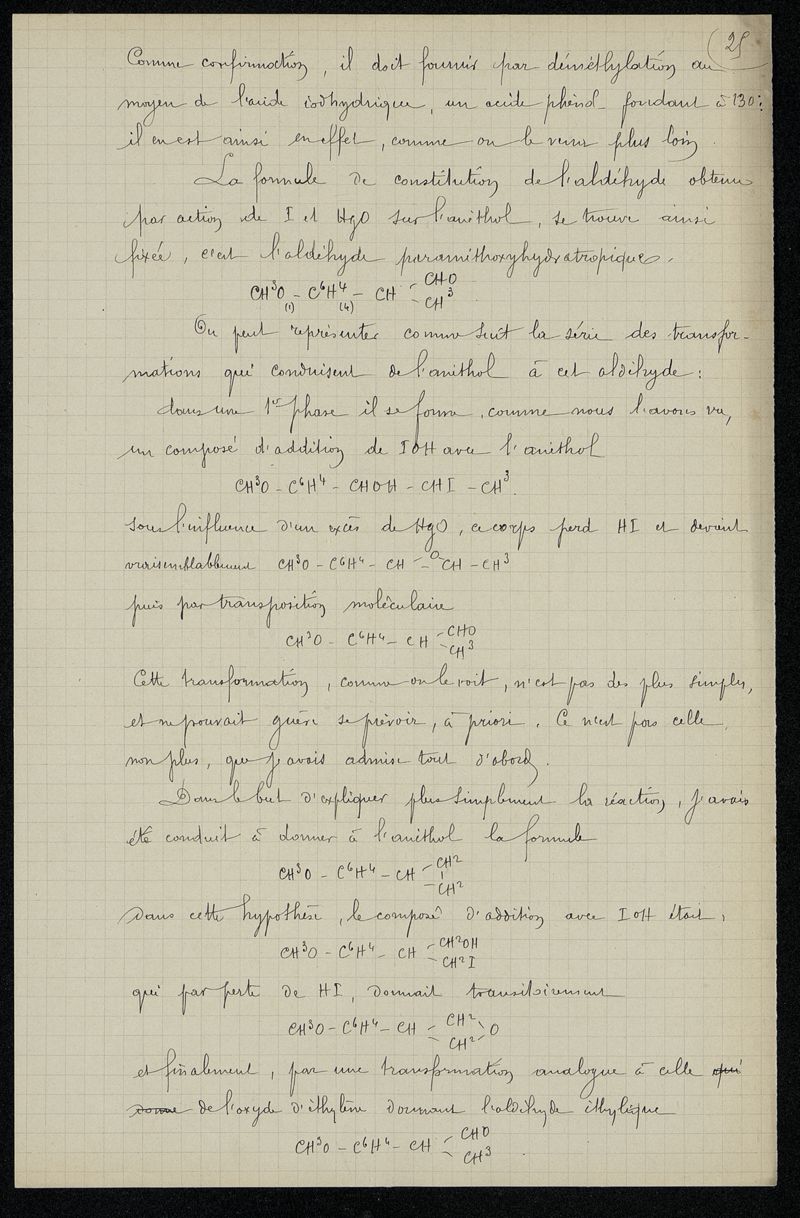 (25
Comme confirmation, il doit fournir par déméthylation au
moyen de l'acide iodhydrique, un acide phénol fondant à 130°:
il en est ainsi en effet, comme on le verra plus loin.
La formule de constitution de l'aldéhyde obtenu
par action de I et HgO sur l'anéthol, se trouve ainsi
fixée, c'est l'aldéhyde paraméthoxyhydratropique.
CH³O - C⁶H⁴ - CH - CHO
(1) (4) - CH³
On peut représenter comme suit la série des transfor-
mations qui conduisent de l'anéthol à cet aldéhyde:
dans une 1re phase il se forme, comme nous l'avons vu,
un composé d'addition de IOH avec l'anéthol
CH³O - C⁶H⁴ - CHOH - CHI - CH³.
sous l'influence d'un excès de HgO, ce corps perd HI et devient
vraisemblablement CH³O - C⁶H⁴ - CH - O - CH - CH³
puis par transposition moléculaire
CH³O - C⁶H⁴ - CH - CHO
- CH³
Cette transformation, comme on le voit, n'est pas des plus simples,
et ne pouvait guère se prévoir, à priori. Ce n'est pas celle,
non plus, que j'avais admise tout d'abord.
Dans le but d'expliquer plus simplement la réaction, j'avais
été conduit à donner à l'anéthol la formule
CH³O - C⁶H⁴ - CH - CH²
- CH²
dans cette hypothèse, le composé d'addition avec IOH était,
CH³O - C⁶H⁴ - CH - CH²OH
- CH²I
qui par perte de HI, donnait transitoirement
CH³O - C⁶H⁴ - CH - CH² - O
- CH² -
et finalement, par une transformation analogue à celle qui
donne de l'oxyde d'éthylène donnant l'aldéhyde éthylique
CH³O - C⁶H⁴ - CH - CHO
- CH³.